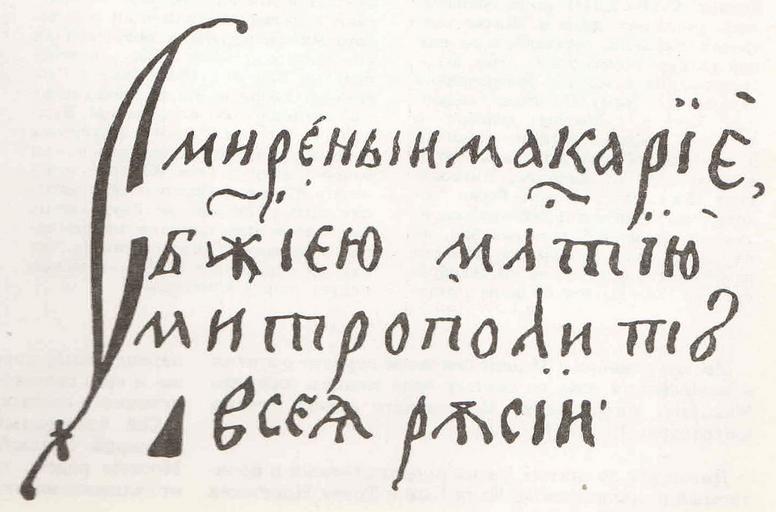 Смире́ныи макарїѐ,
бж҃їею мл҃тїю
митрополитъ
всеѧ̀ рѫсіи